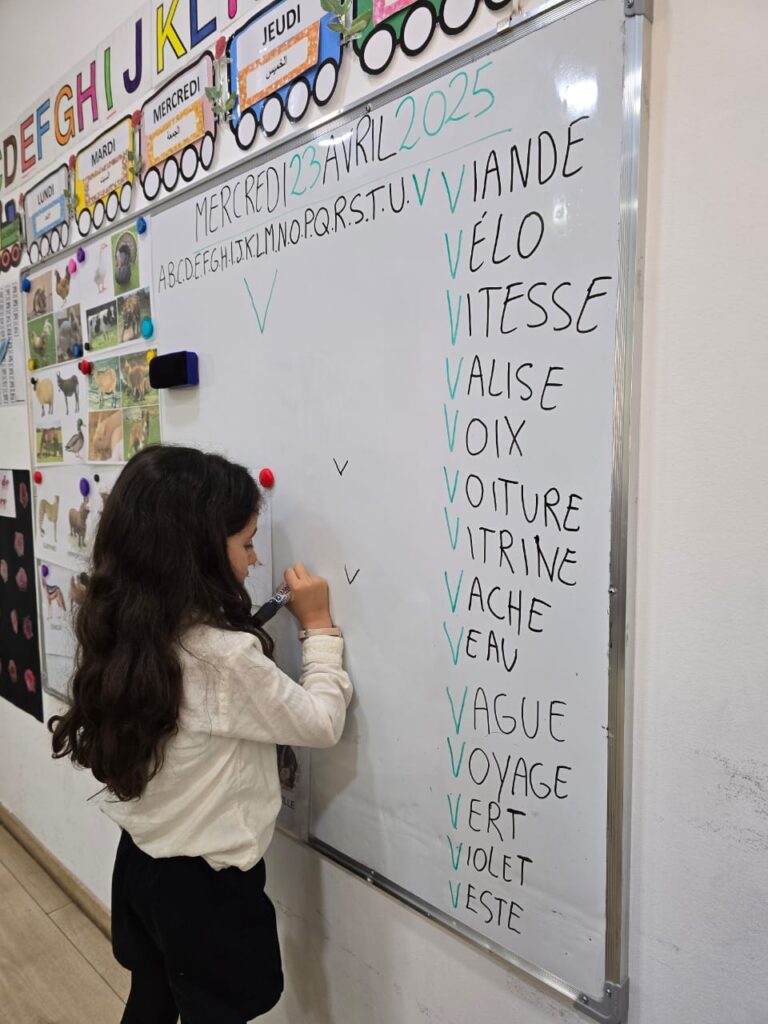 DEFGHIJKL
LUNDI
MARDI
السبت
MERCREDI
الجمعة
JEUDI
الخميس
MERCREDI 23 AVRIL 2025
A.B.C.D.E.F.G.H.I.J.K.L.M.N.O.P.Q.R.S.T.U.V
V
V
V
VIANDE
VÉLO
VITESSE
VALISE
VOIX
VOITURE
VITRINE
VACHE
VEAU
VAGUE
VOYAGE
VERT
VIOLET
VESTE